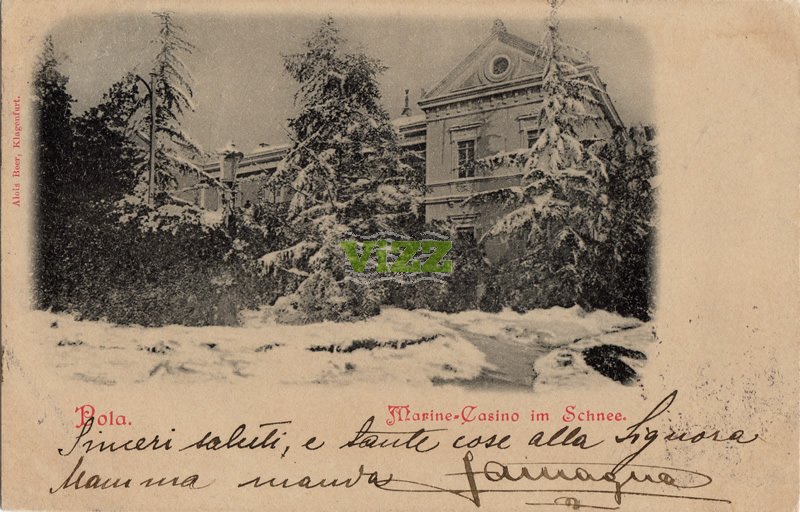 Alois Beer, Klagenfurt.
ViZZ
Pola.
Marine-Casino im Schnee.
Sinceri saluti, e tante cose alla Signora
Mamma manda